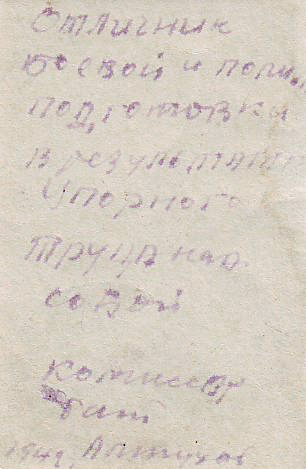 Отличник
боевой и полит.
подготовки
в результате
упорного
труда над
собой
Комиссар
бат
194